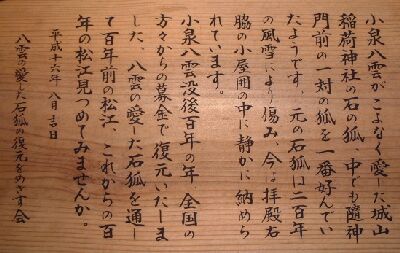 小泉八雲がこよなく愛した城山
稲荷神社の石の狐、中でも隨神
門前の一対の狐を一番好んでい
たようです。元の石狐は二百年
の風雪により傷み、今は拝殿右
脇の小屋囲の中に静かに納めら
れています。
小泉八雲没後百年の年、全国の
方々からの募金で復元いたしま
した。八雲の愛した石狐を通し
て百年前の松江、これからの百
年の松江見つめてみませんか。
平成十六年八月吉日
八雲の愛した石狐の復元をめざす会